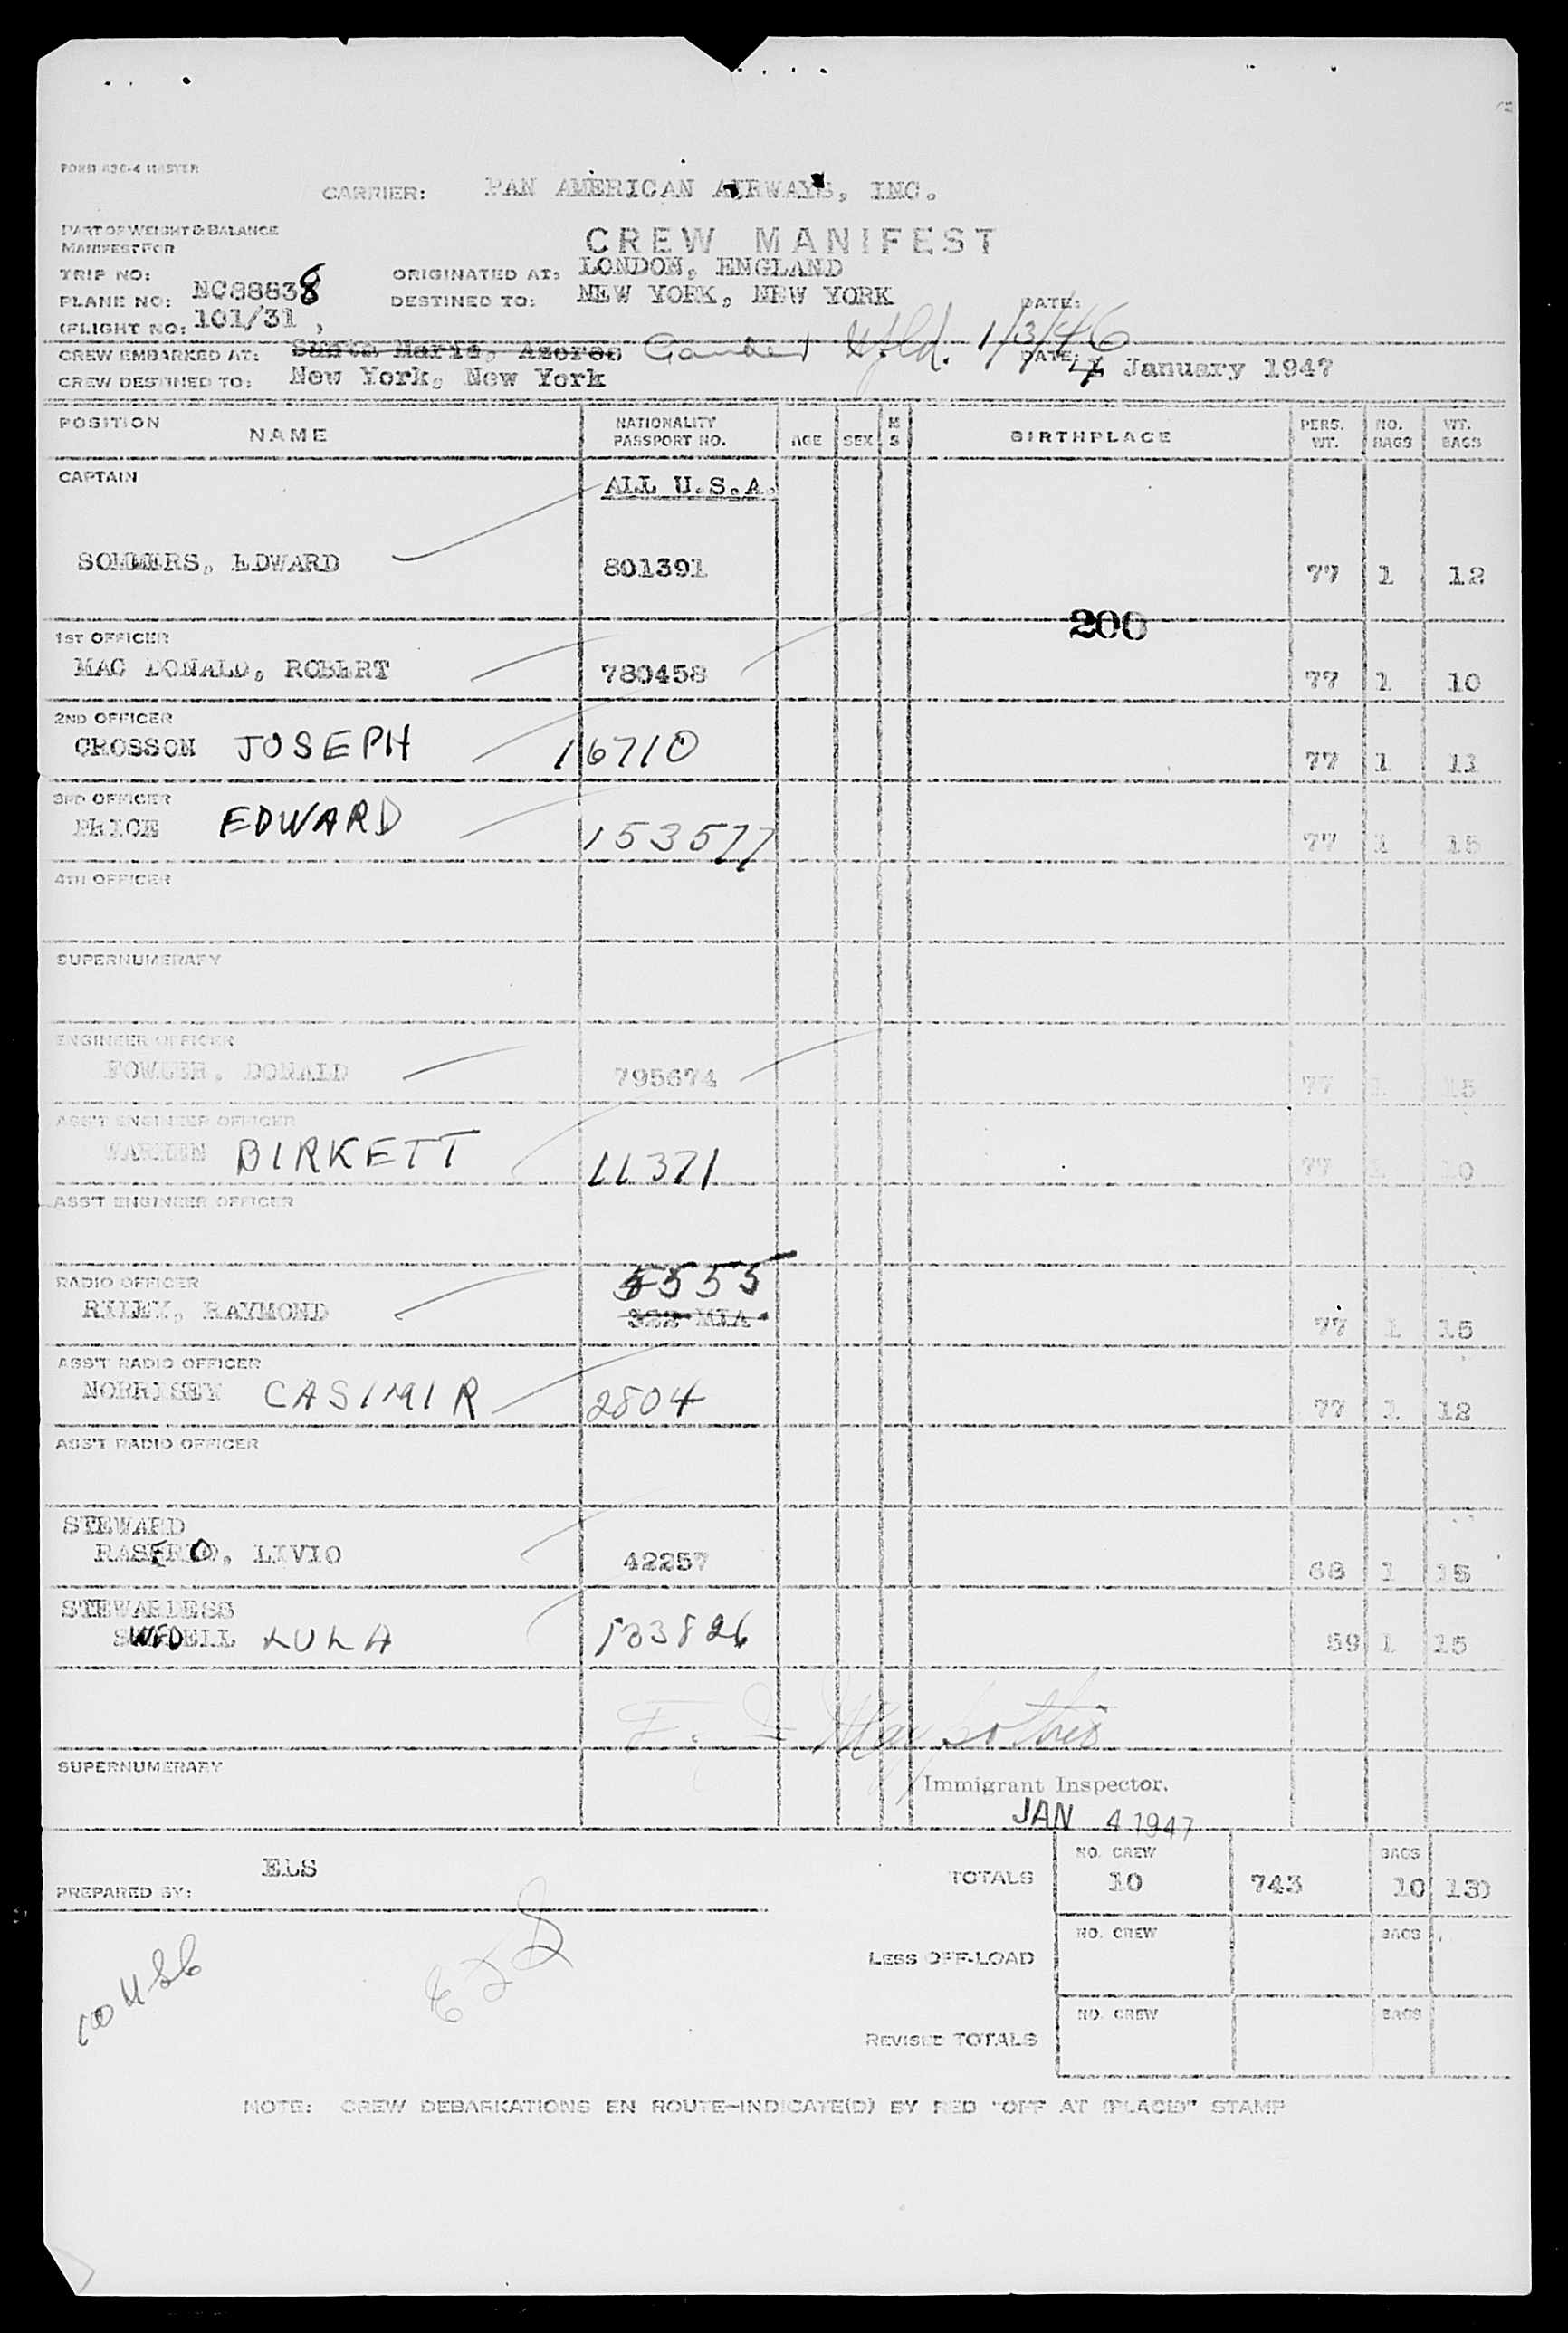 FORM 830-4 MASTER
CARRIER: PAN AMERICAN AIRWAYS, INC.
PART OF WEIGHT & BALANCE
MANIFEST FOR
CREW MANIFEST
TRIP NO: ORIGINATED AT: LONDON, ENGLAND
PLANE NO: NC88838 DESTINED TO: NEW YORK, NEW YORK DATE:
(FLIGHT NO: 101/31 ,
CREW EMBARKED AT: Santa Maria, Azores Gander Nfld. 1/3/46 DATE: 4 January 1947
CREW DESTINED TO: New York, New York
POSITION NAME NATIONALITY PASSPORT NO. AGE SEX M S BIRTHPLACE PERS. WT. NO. BAGS WT. BAGS
CAPTAIN ALL U.S.A.
SOMMERS, EDWARD 801391 77 1 12
200
1ST OFFICER
MAC DONALD, ROBERT 780458 77 1 10
2ND OFFICER
CROSSON JOSEPH 16710 77 1 11
3RD OFFICER
PRICE EDWARD 153577 77 1 15
4TH OFFICER
SUPERNUMERARY
ENGINEER OFFICER
FOWLER, DONALD 795674 77 1 15
ASS'T ENGINEER OFFICER
WARREN BIRKETT 11371 77 1 10
ASS'T ENGINEER OFFICER
RADIO OFFICER 5555
RILEY, RAYMOND 322 MIA 77 1 15
ASS'T RADIO OFFICER
NORRISEY CASIMIR 2804 77 1 12
ASS'T RADIO OFFICER
STEWARD
LIVIO 42257 68 1 15
STEWARDESS
LULA 133826 59 1 15
SUPERNUMERARY
Immigrant Inspector.
JAN 4 1947
ELS
PREPARED BY:
TOTALS NO. CREW 10 743 BAGS 10 130
LESS OFF-LOAD NO. CREW BAGS
REVISED TOTALS NO. CREW BAGS
10 USC
NOTE: CREW DEBARKATIONS EN ROUTE-INDICATE(D) BY RED "OFF AT (PLACE)" STAMP